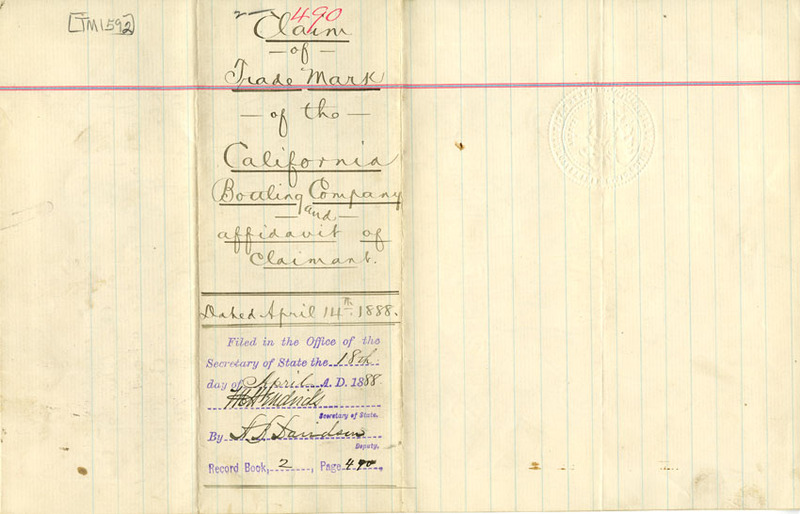 [TM1592]
2 490
Claim
— of —
Trade Mark
— of the —
California
Bottling Company
— and —
affidavit of
Claimant.
Dated April 14th 1888.
Filed in the Office of the
Secretary of State the 18th
day of April A. D. 1888
W C Hendricks
Secretary of State.
By A. F. Davidson
Deputy.
Record Book, 2, Page 490,